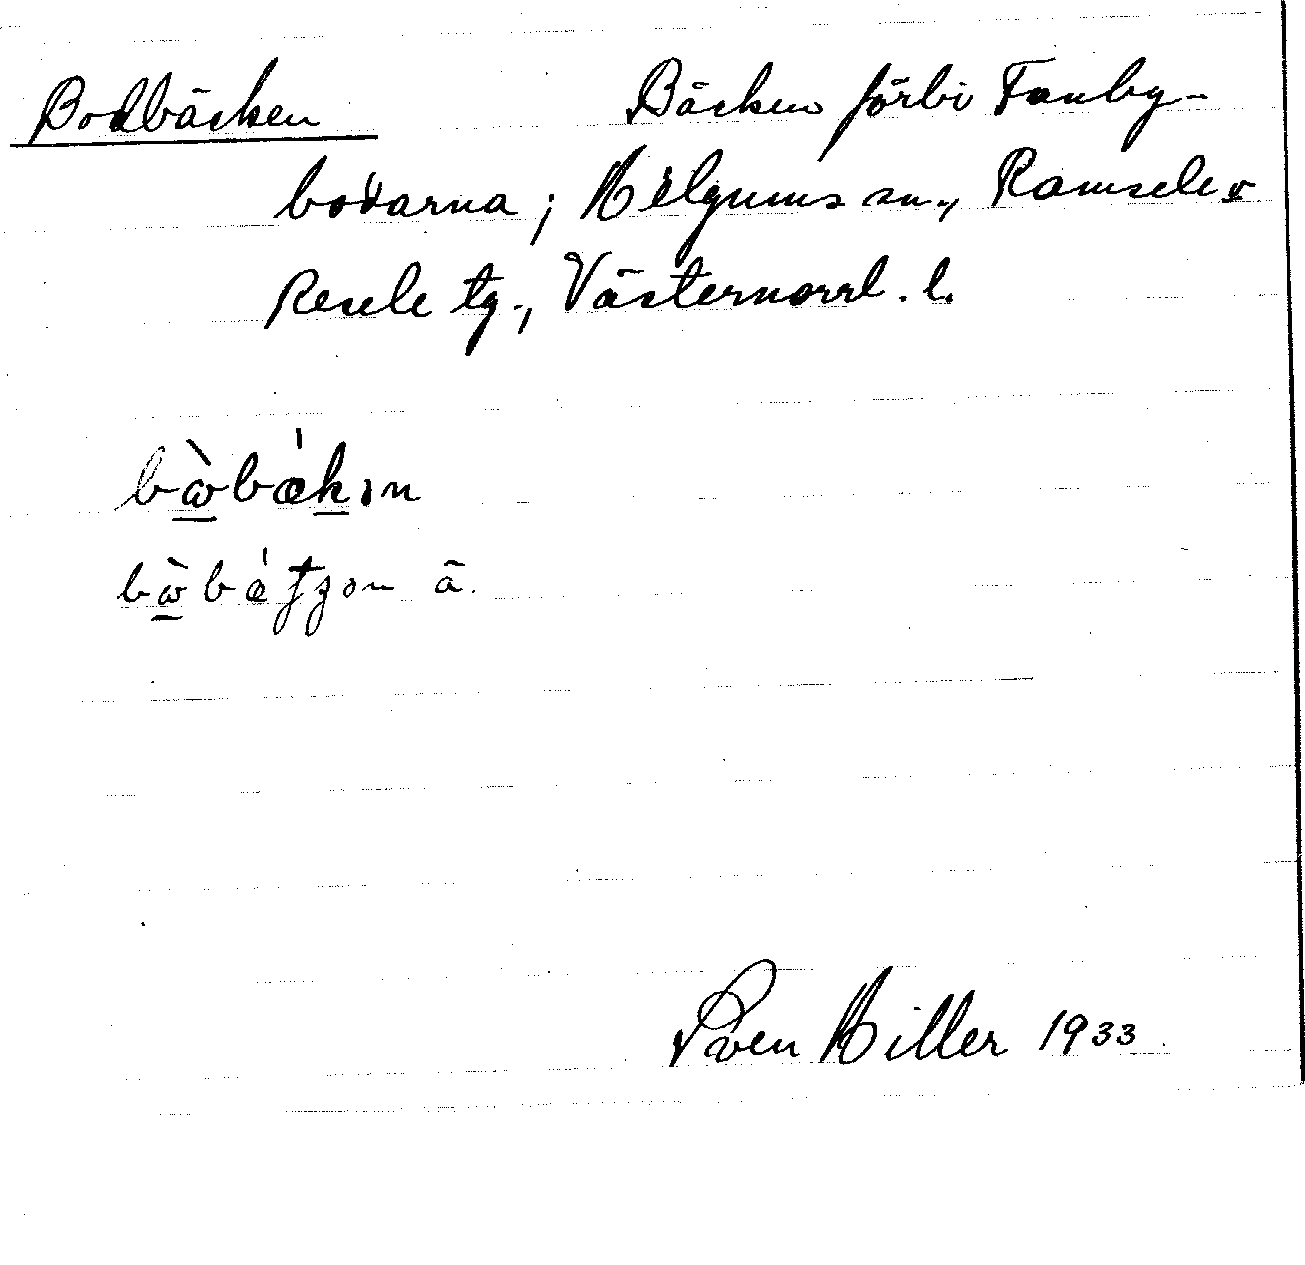 Bodbäcken Bäcken förbi Fanby-
bodarna; Helgums sn., Ramsele o
Resele tg., Västernorrl. l.
bɷ̀bǽkın
bɷ̀bǽtȷən ä.
Sven Hiller 1933